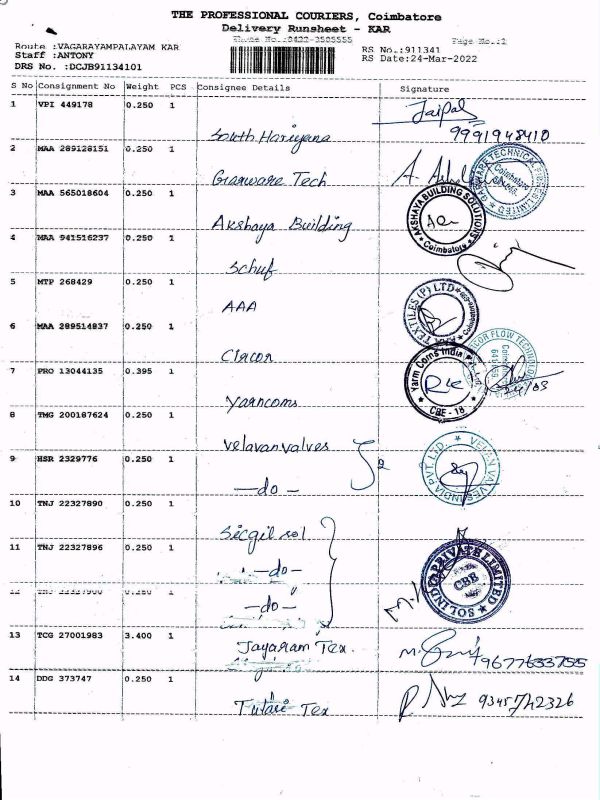 THE PROFESSIONAL COURIERS, Coimbatore
Delivery Runsheet - KAR
Phone No.:0422-3505555 Page No.:1
Route :VAGARAYAMPALAYAM KAR RS No.:911341
Staff :ANTONY RS Date:24-Mar-2022
DRS No. :DCJB91134101
S No Consignment No Weight PCS Consignee Details Signature
1 VPI 449178 0.250 1 South Hariyana Jaipal 9991948410
2 MAA 289128151 0.250 1 Garware Tech
3 MAA 565018604 0.250 1 Akshaya Building AKSHAYA BUILDING SOLUTIONS Coimbatore
4 MAA 941516237 0.250 1 Schuf
5 MTP 268429 0.250 1 AAA TEXTILES (P) LTD
6 MAA 289514837 0.250 1 Circor
7 PRO 13044135 0.395 1 Yarncoms Yarn Coms India CBE - 18
8 TMG 200187624 0.250 1 Velavan valves
9 HSR 2329776 0.250 1 -do- 2 VELAN VALVES INDIA PVT. LTD.
10 TNJ 22327890 0.250 1 Sicgil sol
11 TNJ 22327896 0.250 1 -do- PRIVATE LIMITED CBE
12 TNJ 22327900 0.250 1 -do-
13 TCG 27001983 3.400 1 Jayaram Tex. 9677633755
14 DDG 373747 0.250 1 Tex